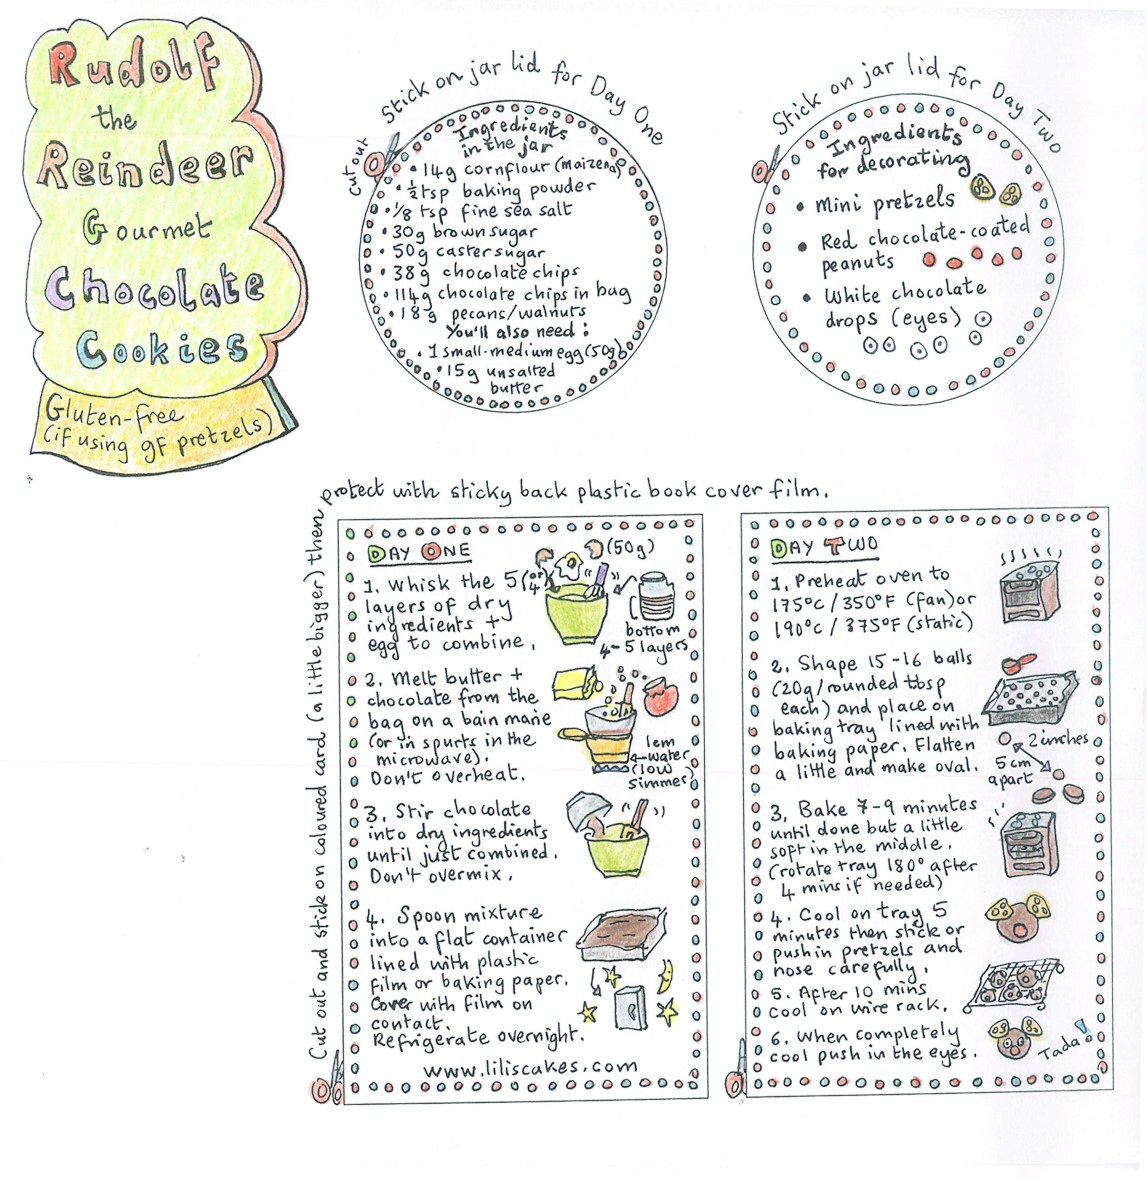 Rudolf
the
Reindeer
Gourmet
Chocolate
Cookies
Gluten-free
(if using gf pretzels)
Stick on jar lid for Day One
cut out
Ingredients
in the jar
• 14g cornflour (maizena)
• ½ tsp baking powder
• ⅛ tsp fine sea salt
• 30g brown sugar
• 50g caster sugar
• 38g chocolate chips
• 114g chocolate chips in bag
• 18g pecans/walnuts
You'll also need:
• 1 small-medium egg (50g)
• 15g unsalted
butter
Stick on jar lid for Day Two
Ingredients
for decorating
• Mini pretzels
• Red chocolate-coated
peanuts
• White chocolate
drops (eyes)
Cut out and stick on coloured card (a little bigger) then
protect with sticky back plastic book cover film.
DAY ONE
(50g)
1. Whisk the 5 (or 4)
layers of dry
ingredients +
egg to combine.
bottom
4-5 layers
2. Melt butter +
chocolate from the
bag on a bain marie
(or in spurts in the
microwave).
Don't overheat.
1cm
water
(low
simmer)
3. Stir chocolate
into dry ingredients
until just combined.
Don't overmix.
4. Spoon mixture
into a flat container
lined with plastic
film or baking paper.
Cover with film on
contact.
Refrigerate overnight.
www.liliscakes.com
DAY TWO
1. Preheat oven to
175°C/350°F (fan) or
190°C/375°F (static)
2. Shape 15-16 balls
(20g/rounded tbsp
each) and place on
baking tray lined with
baking paper. Flatten
a little and make oval.
2 inches
5cm
apart
3. Bake 7-9 minutes
until done but a little
soft in the middle.
(rotate tray 180° after
4 mins if needed)
4. Cool on tray 5
minutes then stick or
push in pretzels and
nose carefully.
5. After 10 mins
cool on wire rack.
6. When completely
cool push in the eyes.
Tada!